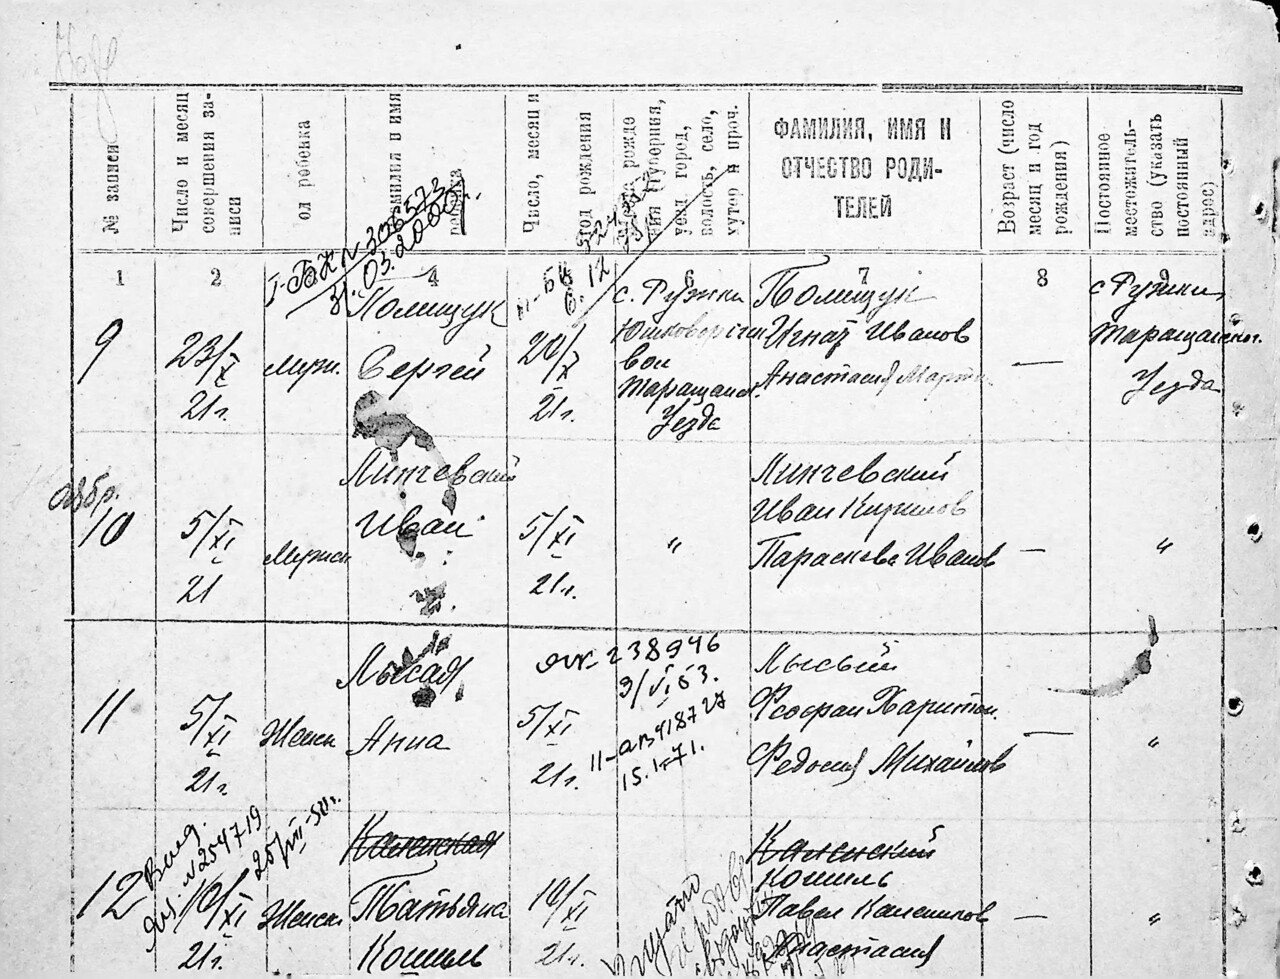 № записи
Число и месяц
совершения за-
писи
ол ребенка
амилия и имя
Число, месяц и
год рождения
рожде
ния (губерния,
уезд город,
волость, село,
хутор и проч.
ФАМИЛИЯ, ИМЯ И
ОТЧЕСТВО РОДИ-
ТЕЛЕЙ
Возраст (число
месяц и год
рождения)
Постоянное
местожитель-
ство (указать
постоянный
адрес)
I-БК № 306573
31.03.2000г.
1 2 4 6 7 8 9
9
23/X
21г.
Мужс.
Полищук
Сергей
20/X
21г.
с. Ружки
вол
Таращанс.
Уезда
Полищук
Игнат Иванов
Анастасия Марти
—
с Ружки
Таращанског.
Уезда
10
5/XI
21
Мужск
Линчевский
Иван
5/XI
21г.
"
Линчевский
Иван Кирилов
Параскева Иванов
—
"
11
5/XI
21г
Женск
Лысая
Анна
5/XI
21г.
238946
9/VI 53.
II-АВ 418727
15.1.71.
Лысый
Феофан Харитон.
Федосия Михайлов
—
"
12
Выд.
№ 254719
25/VII-50г.
10/XI
21г.
Женск
Каленская
Татьяна
Кошиль
10/XI
21г.
Каленский
Кошиль
Павел Калеников
Анастасия
—
"